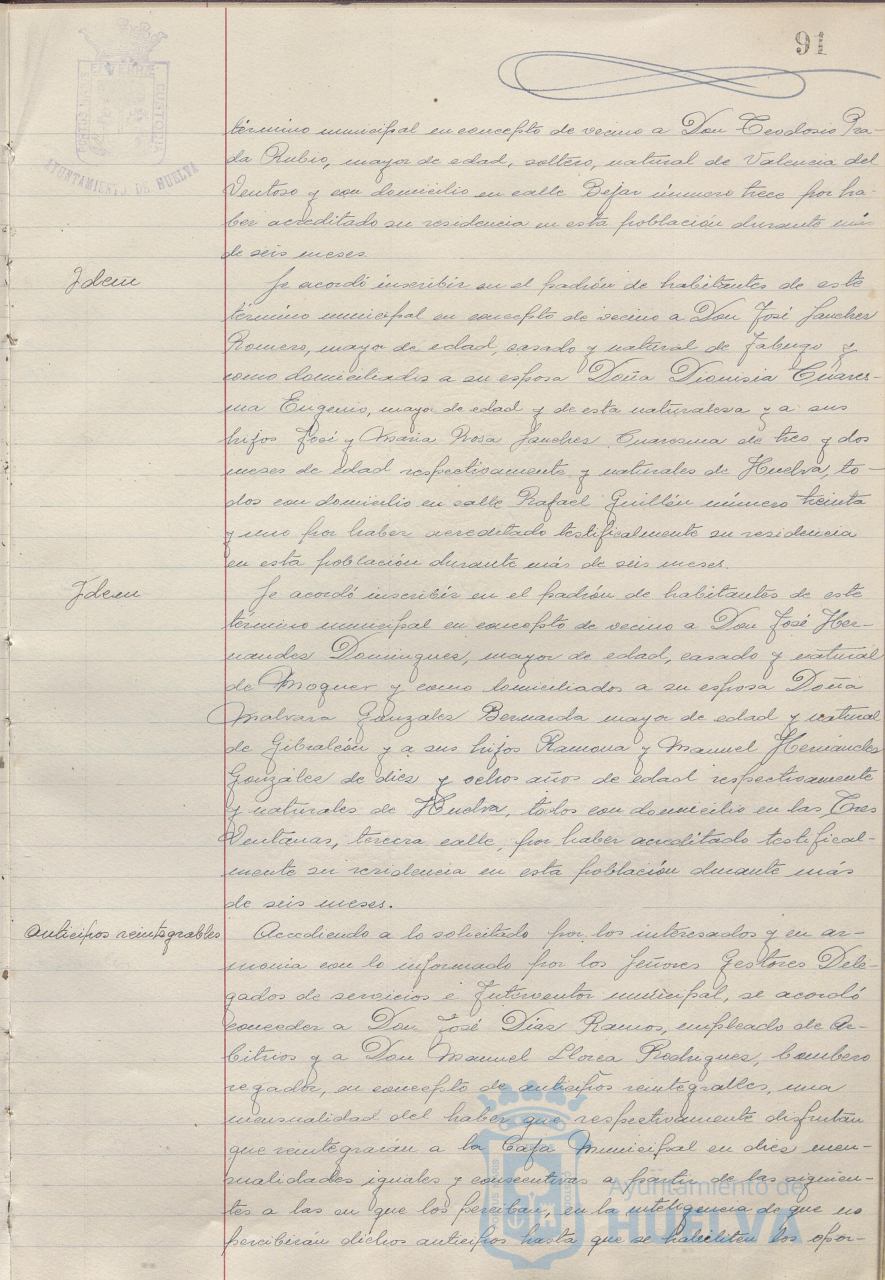 91
PORTUS MARIS
ET TERRAE
CUSTODIA
AYUNTAMIENTO DE HUELVA
término municipal en concepto de vecino a Don Teodosio Pra-
da Rubio, mayor de edad, soltero, natural de Valencia del
Ventoso y con domicilio en calle Bejar número trece por ha-
ber acreditado su residencia en esta población durante más
de seis meses.
Idem
Se acordó inscribir en el padrón de habitantes de este
término municipal en concepto de vecino a Don José Sanchez
Romero, mayor de edad, casado y natural de Jabugo y
como domiciliados a su esposa Doña Dionisia Cuares-
ma Eugenio, mayor de edad y de esta naturaleza y a sus
hijos José y Maria Rosa Sanchez Cuaresma de tres y dos
meses de edad respectivamente y naturales de Huelva, to-
dos con domicilio en calle Rafael Guillén número treinta
y uno por haber acreditado testificalmente su residencia
en esta población durante más de seis meses.
Idem
Se acordó inscribir en el padrón de habitantes de este
término municipal en concepto de vecino a Don José Her-
nandez Dominguez, mayor de edad, casado y natural
de Moguer y como domiciliados a su esposa Doña
Gonzalez Bernarda mayor de edad y natural
de Gibraleón y a sus hijos Ramona y Manuel Hernandez
Gonzalez de diez y ochos años de edad respectivamente
y naturales de Huelva, todos con domicilio en las Tres
Ventanas, tercera calle, por haber acreditado testifical-
mente su residencia en esta población durante más
de seis meses.
Anticipos reintegrables
Accediendo a lo solicitado por los interesados y en ar-
monia con lo informado por los Señores Gestores Dele-
gados de servicios e Interventor municipal, se acordó
conceder a Don José Díaz Ramos, empleado de Ar-
bitrios y a Don Manuel Llorca Rodriguez, bombero
regador, en concepto de anticipos reintegrables, una
mensualidad del haber que respectivamente disfrutan
que reintegrarán a la Caja Municipal en diez men-
sualidades iguales y consecutivas a partir de las siguien-
tes a las en que los perciban, en la inteligencia de que no
percibirán dichos anticipos hasta que se habiliten los opor-
Ayuntamiento de
HUELVA